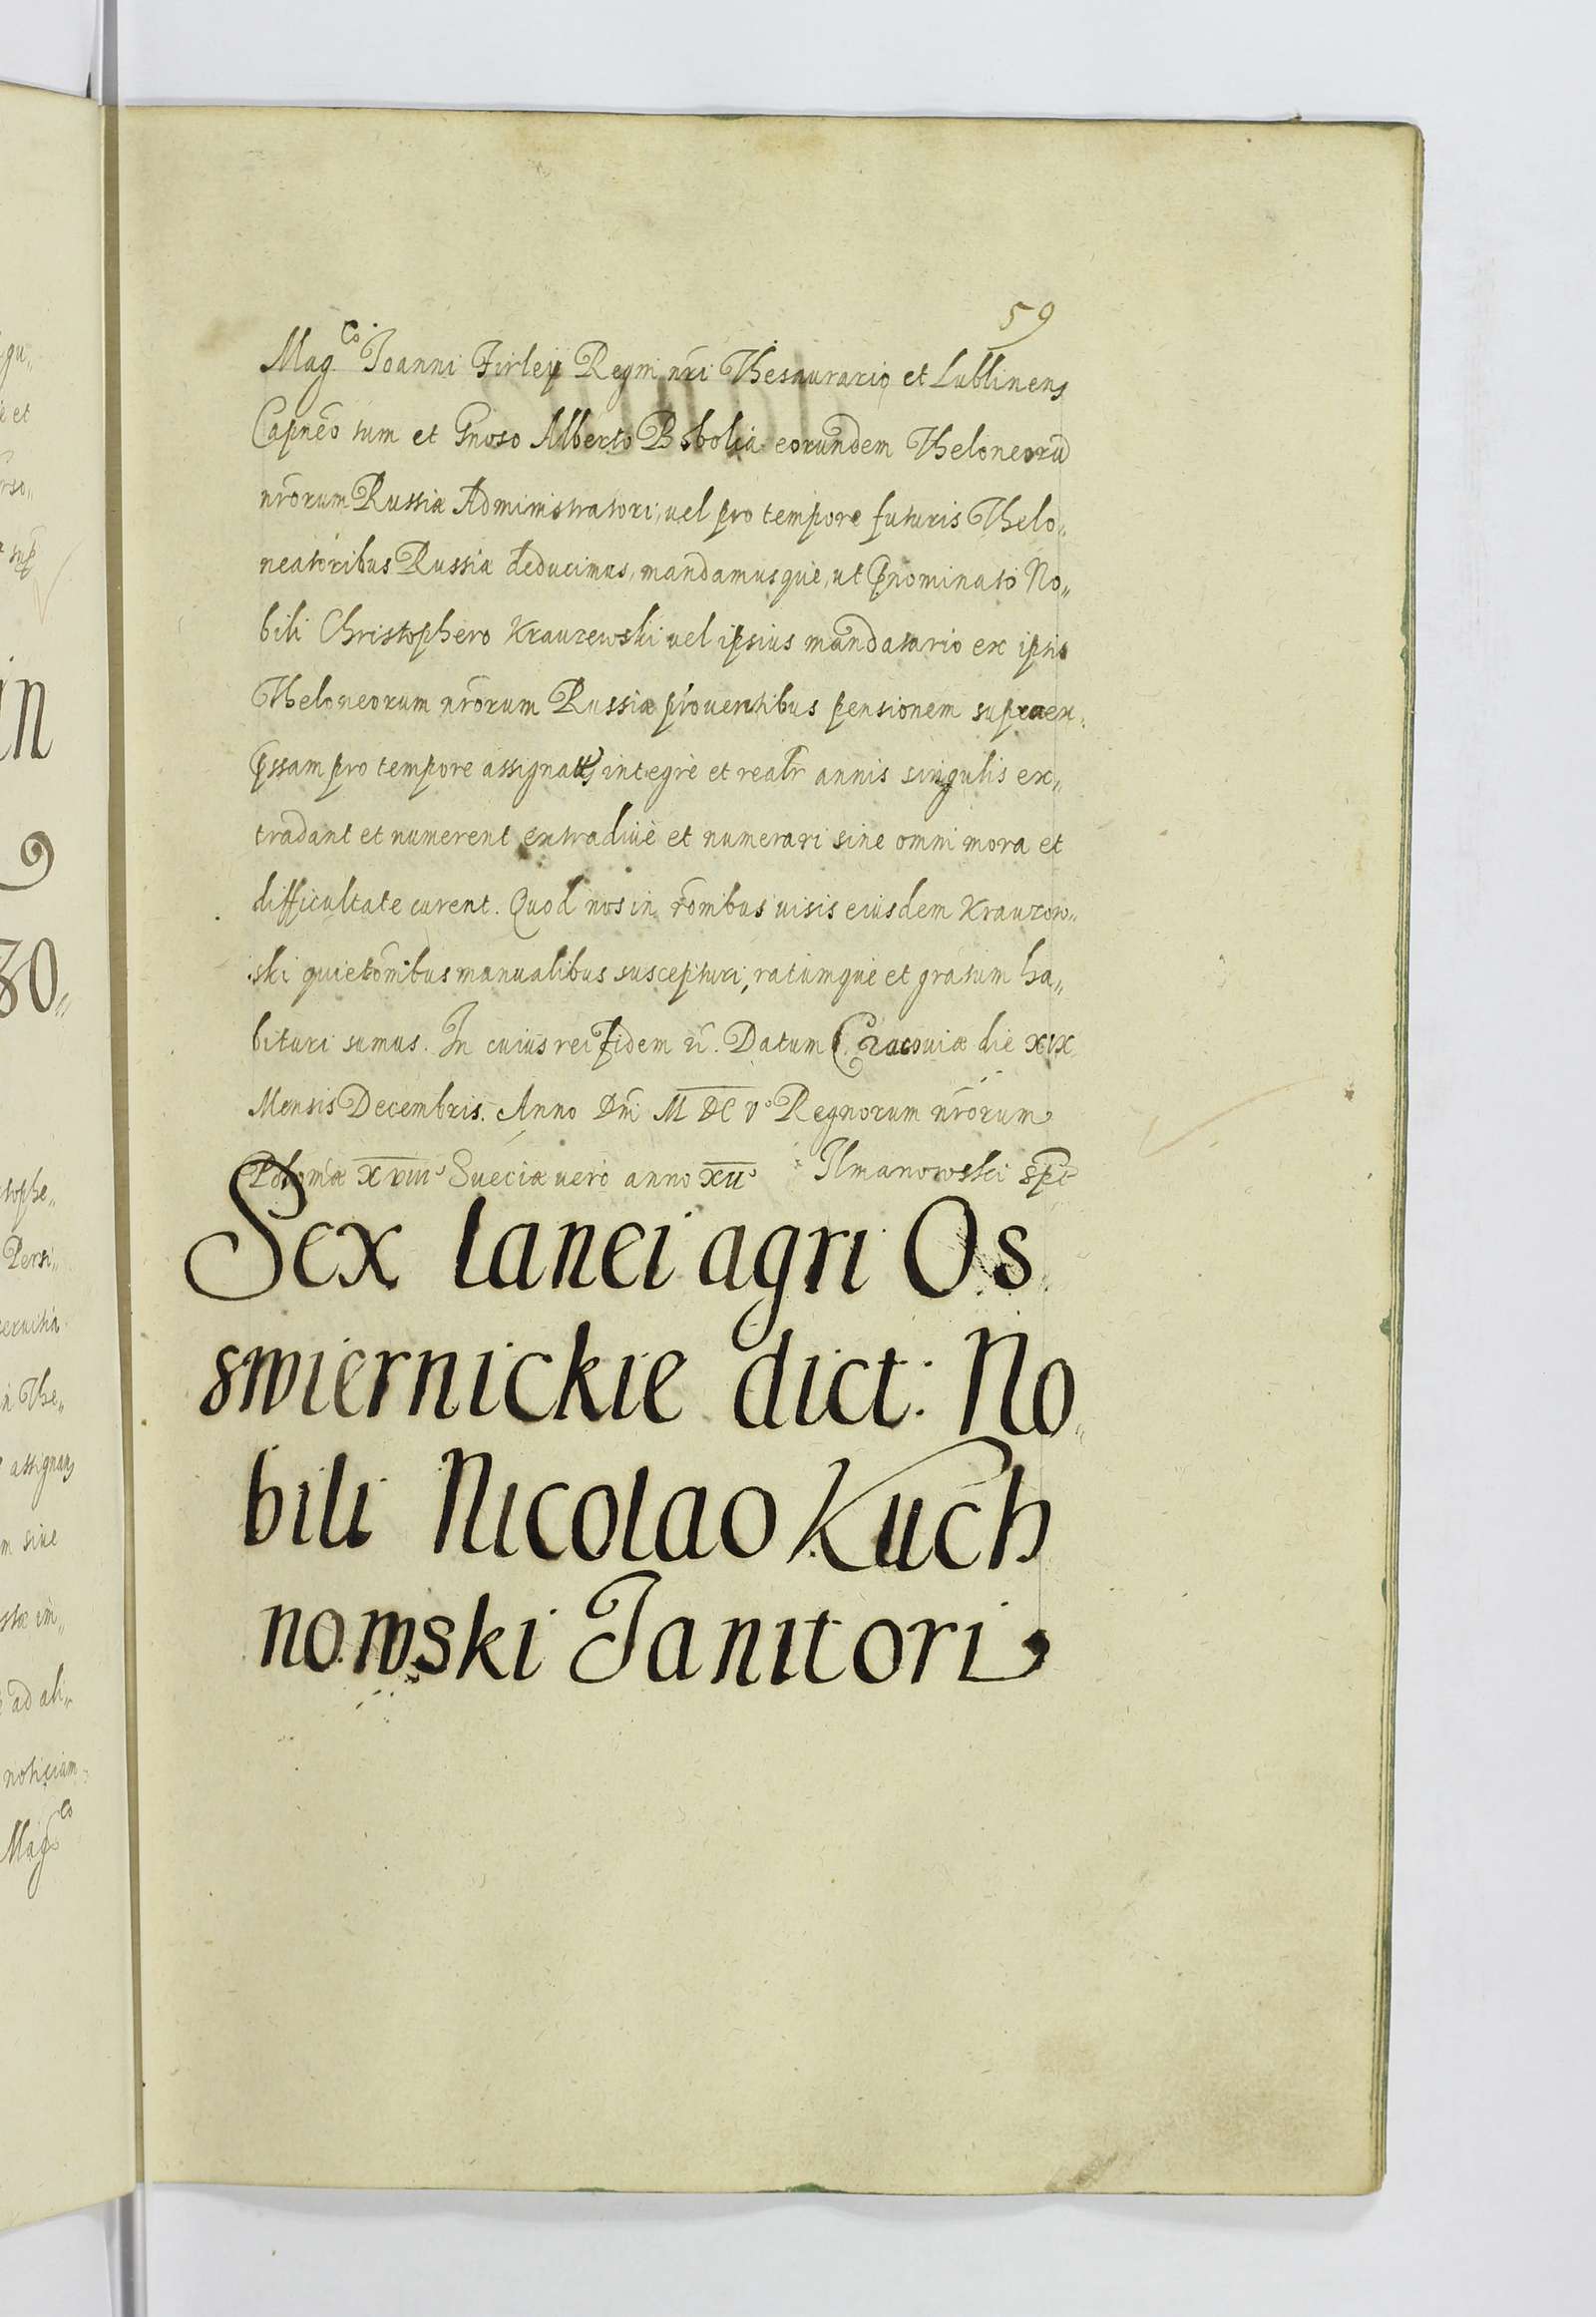 59
Mag.co Joanni Firleÿ Regni nri Thesaurario et Lublinens
Capneo tum et Gnoso Alberto Bobolia eorundem Theloneorū
nrorum Russiæ Administratori, uel pro tempore futuris Thelo„
neatoribus Russiæ deducimus, mandamusque, ut pnominato No„
bili Christophero Krauzewski uel ipsius mandatario ex ipsis
Theloneorum nrorum Russiæ prouentibus pensionem supraex„
pssam pro tempore assignat integre et realr annis singulis ex„
tradant et numerent extradiue et numerari sine omni mora et
difficultate curent. Quod nos in rombus uisis eiusdem Krauzow„
ski quietombus manualibus suscepturi, ratumque et gratum ha„
bituri sumus. In cuius rei fidem &c. Datum Cracouiæ die XIX
Mensis Decembris. Anno Dni M DC Vo Regnorum nrorum
Poloniæ XVIIIo Sueciæ uero anno XIIo Ilmanowski spt
Sex lanei agri Os
swiernickie dict: No„
bili Nicolao Kuch
nowski Janitori
gu„
et
rso„
in
9
30„
stophe„
Persi„
The„
assignan
sive
im„
ad ali„
noticiam
Magco